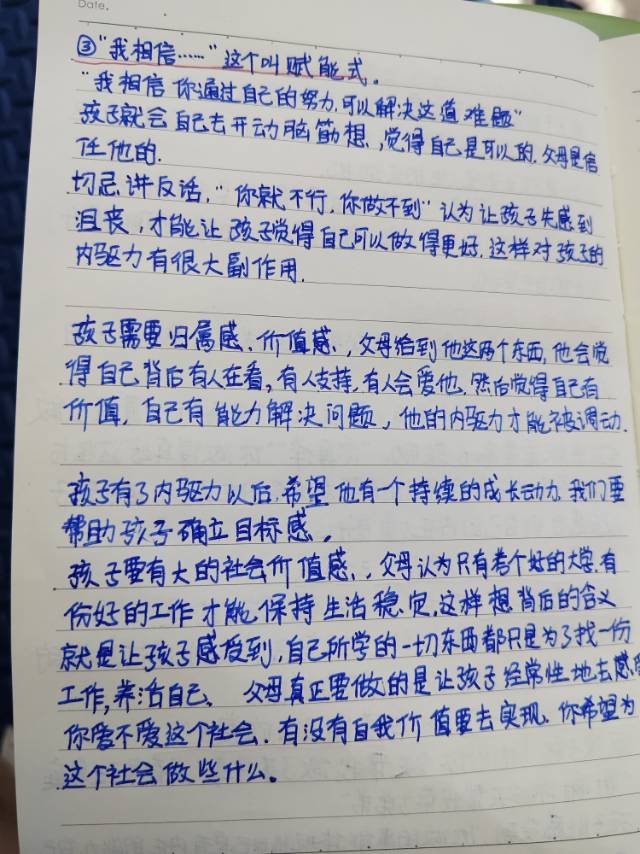 Date.
③"我相信……"这个叫赋能式。
"我相信你通过自己的努力,可以解决这道难题"
孩子就会自己去开动脑筋想,觉得自己是可以的,父母是信
任他的.
切忌讲反话,"你就不行,你做不到"认为让孩子先感到
沮丧,才能让孩子觉得自己可以做得更好,这样对孩子的
内驱力有很大副作用.
孩子需要归属感、价值感、,父母给到他这两个东西,他会觉
得自己背后有人在看,有人支持,有人会爱他,然后觉得自己有
价值,自己有能力解决问题,他的内驱力才能被调动.
孩子有了内驱力以后,希望他有一个持续的成长动力,我们要
帮助孩子确立目标感。
孩子要有大的社会价值感、,父母认为只有考个好的大学,有
份好的工作才能保持生活稳定,这样想背后的含义
就是让孩子感受到,自己所学的一切东西都只是为了找一份
工作,养活自己、父母真正要做的是让孩子经常性地去感
你爱不爱这个社会.有没有自我价值要去实现.你希望为
这个社会做些什么。